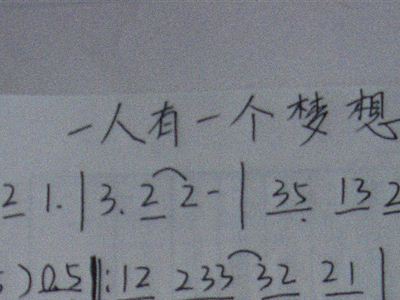 一人有一个梦想
2 1. | 3. 2 2 - | 35 13 2
) 0.5 ‖: 12 233 32 21 |